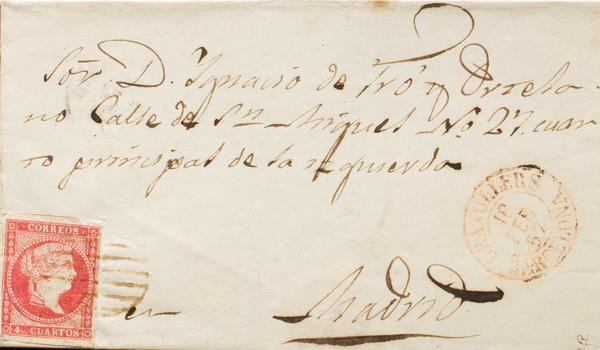 Sor. D. Ignacio de Fró y Orzela
no Calle de Sn. Miguel No. 27. cuar
to principal de la izquierda
CORREOS
4 CUARTOS
GRANOLLERS
BARCELONA
en Madrid